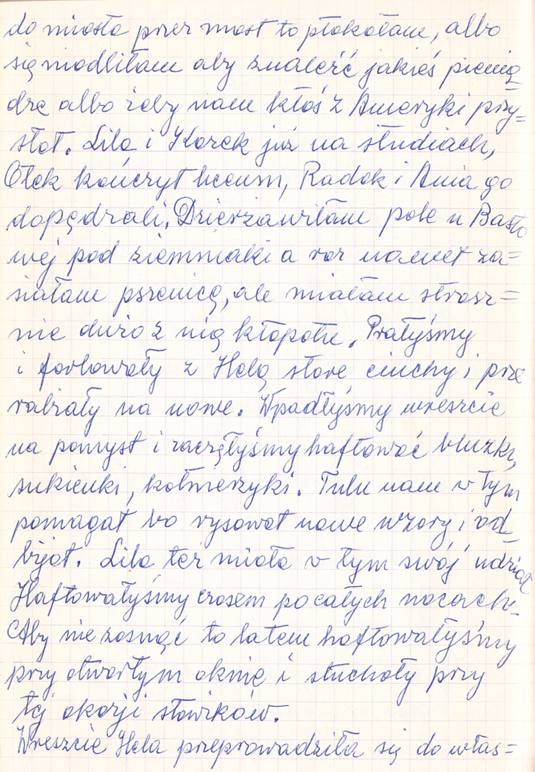 do miasta przez most to płakałam, albo
się modliłam aby znaleźć jakieś pienią=
dze albo żeby nam ktoś z Ameryki przy=
słał. Lila i Jurek już na studiach,
Olek kończył liceum, Radek i Ania go
dopędzali. Dzierżawiłam pole u Basto
wej pod ziemniaki a raz nawet za=
siałam pszenicę, ale miałam strasz=
nie dużo z nią kłopotu. Prałyśmy
i farbowały z Helą stare ciuchy i prze
rabiały na nowe. Wpadłyśmy wreszcie
na pomysł i zaczęłyśmy haftować bluzki,
sukienki, kołnierzyki. Tulu nam w tym
pomagał bo rysował nowe wzory i od=
bijał. Lila też miała w tym swój udział
Haftowałyśmy czasem po całych nocach.
Aby nie zasnąć to latem haftowałyśmy
przy otwartym oknie i słuchały przy
tej okazji słowików.
Wreszcie Hela przeprowadziła się do włas=